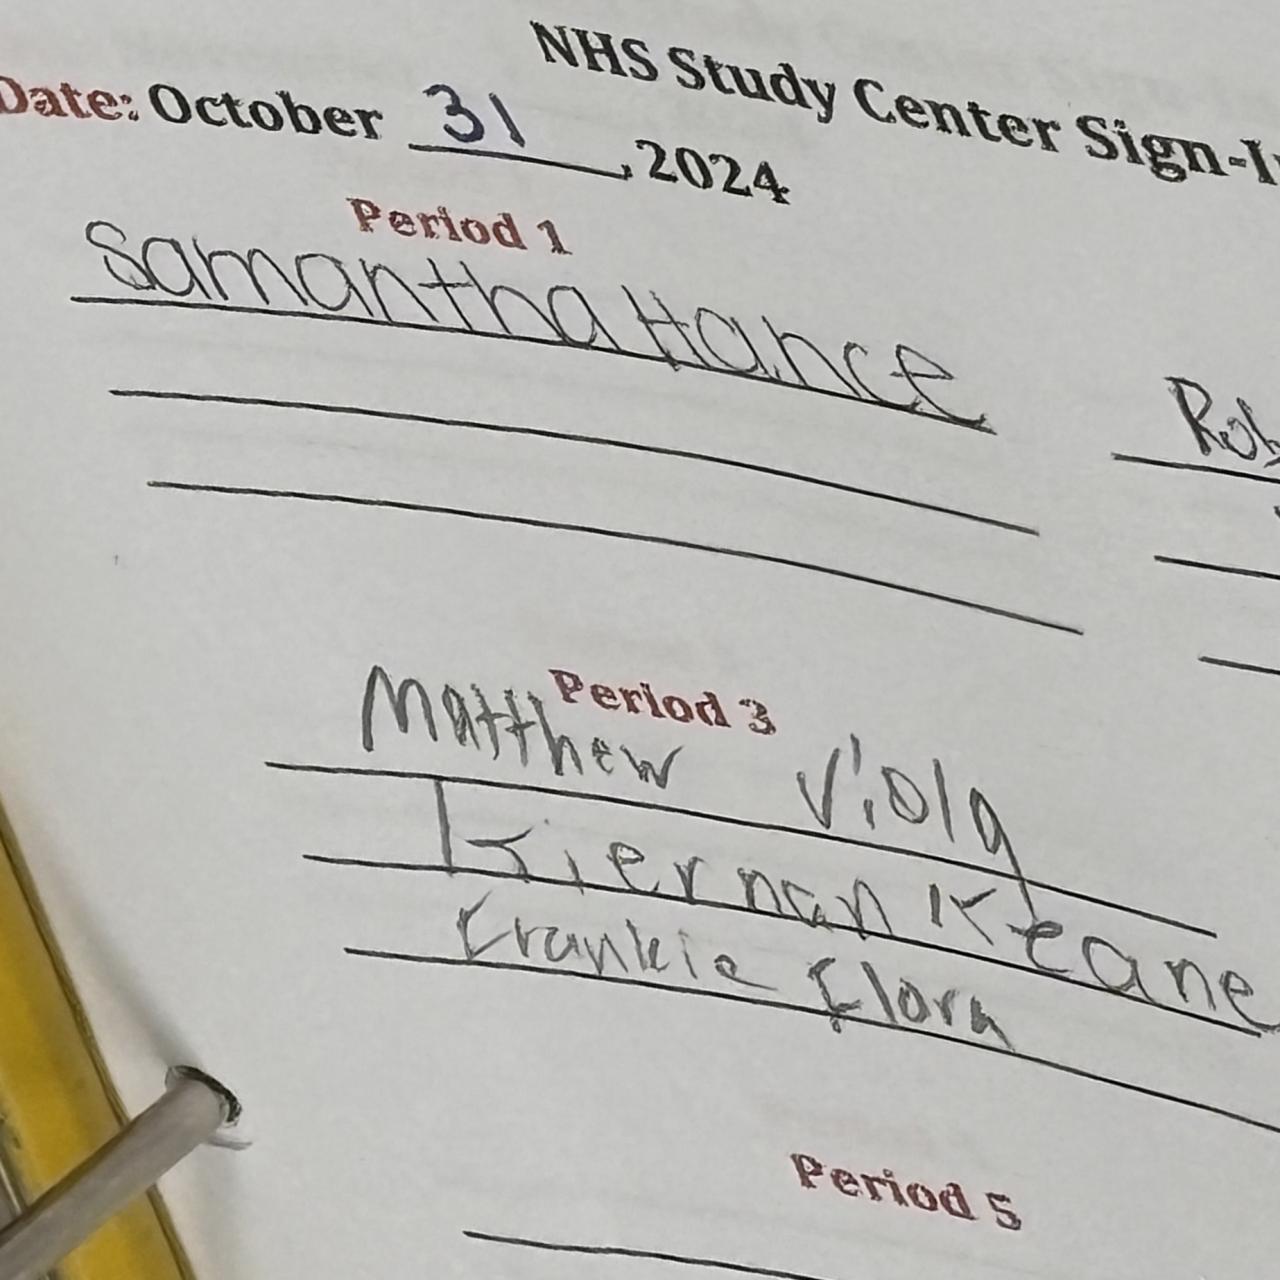 NHS Study Center Sign-I
Date: October 31, 2024
Period 1
Samantha Hance
Rob
Period 3
Matthew Viola
Kiernan Keane
Frankie Flora
Period 5